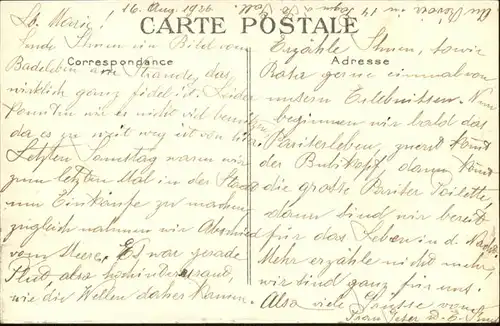 16. Aug. 1926
CARTE POSTALE
Correspondance
Lb. Marie!
Sende Ihnen ein Bild vom
Badeleben am Strande, das
wirklich ganz fidel ist. Leider
konnten wir es nicht viel benützen
da es zu weit weg ist von hier.
Letzten Samstag waren wir
zum letzten Mal in der Stadt
um Einkäufe zu machen,
zugleich nahmen wir Abschied
vom Meere. Es war gerade
Flut, also hochinteressant,
wie die Wellen daher kamen.
Adresse
Erzähle Ihnen, sowie
gerne einmal von
unsern Erlebnissen. Nun
beginnen wir bald das
Pariserleben, zuerst kommt
der Bubikopf, dann kommt
die grosse Pariser Toilette,
dann sind wir bereit
für das Leben in d.
Mehr erzähle nicht mehr
wir sind ganz für uns.
Also viele Grüsse von
Frau Peter